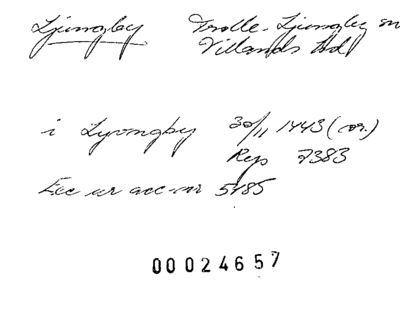 Ljungby Trolle-Ljungby sn
Villands hd
i Lyongby 30/11 1443 (or.)
Rep 2383
Exc ur acc-nr 5785
0002465 7